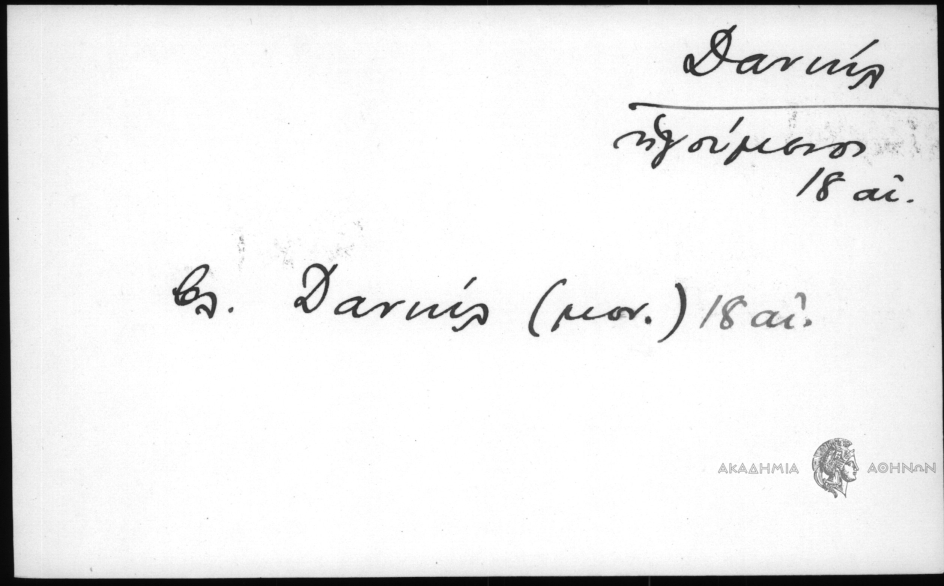 Δανιήλ
ἡγούμενος
18 αἰ.
βλ. Δανιήλ (μον.) 18 αἰ.
ΑΚΑΔΗΜΙΑ ΑΘΗΝΩΝ